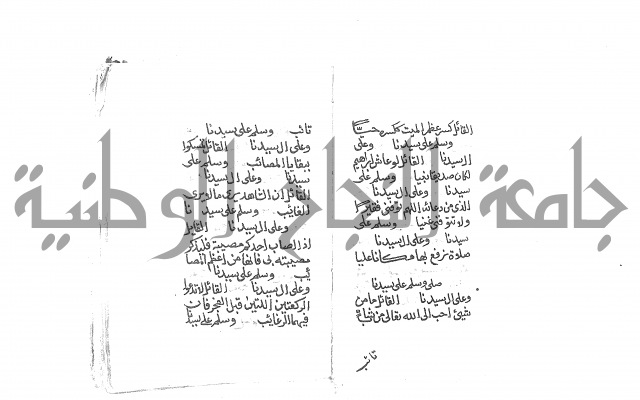 القائل كسر عظم الميت ككسره حيا
وسلم على سيدنا وعلى
ال سيدنا القائل لو عاش ابراهيم
لكان صديقا نبيا وسلم على
سيدنا وعلى ال سيدنا
الذي من دعائه اللهم توفني فقيرا
ولا تتوفني غنيا وسلم على
سيدنا وعلى ال سيدنا
صلاة نرفع بها مكانا عليا
صلى وسلم على سيدنا
وعلى ال سيدنا القائل ما من
شيئ احب الى الله تعالى من شاب
تائب
تائب وسلم على سيدنا
وعلى ال سيدنا القائل
بقايا المصائب وسلم على
سيدنا وعلى ال سيدنا
القائل ان الشاهد يرى ما لا يرى
الغائب وسلم على سيدنا
وعلى ال سيدنا القائل
اذا اصاب احدكم مصيبة فليذكر
مصيبته بي فانها من اعظم المصا
ئب وسلم على سيدنا
وعلى ال سيدنا القائل
الركعتين اللتين قبل الفجر فان
فيهما الرغايب وسلم على سيدنا
جامعة النجاح الوطنية